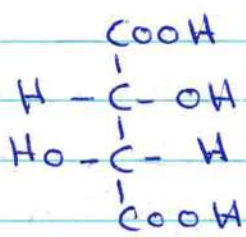 COOH
H - C - OH
HO - C - H
COOH